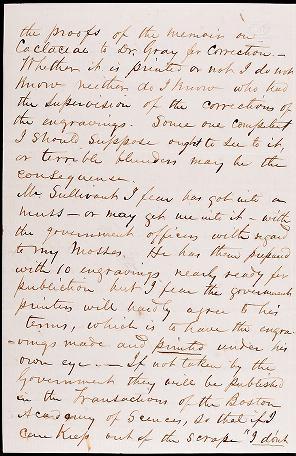 the proofs of the memoir on
Caclaceae to Dr. Gray for Correction. –
Whether it is printed or not I do not
Know neither do I Know who had
the supervision of the corrections of
the engravings. Some one competent
I should suppose ought to see to it,
or terrible blunders may be the
consequence.
Mr. Sullivant I fear has got into a
muss – or may get me into it – with
the government officers with regard
to my Mosses. He has them prepared
with 10 engravings nearly ready for
publiction but I fear the government
printers will hardly agree to his
terms, which is to have the engra-
-vings made and printed under his
own eye — If not taken by the
Government they will be published
in the Transactions of the Boston
Academy of Sciences, so that if I
can Keep out of the scrape "I don't